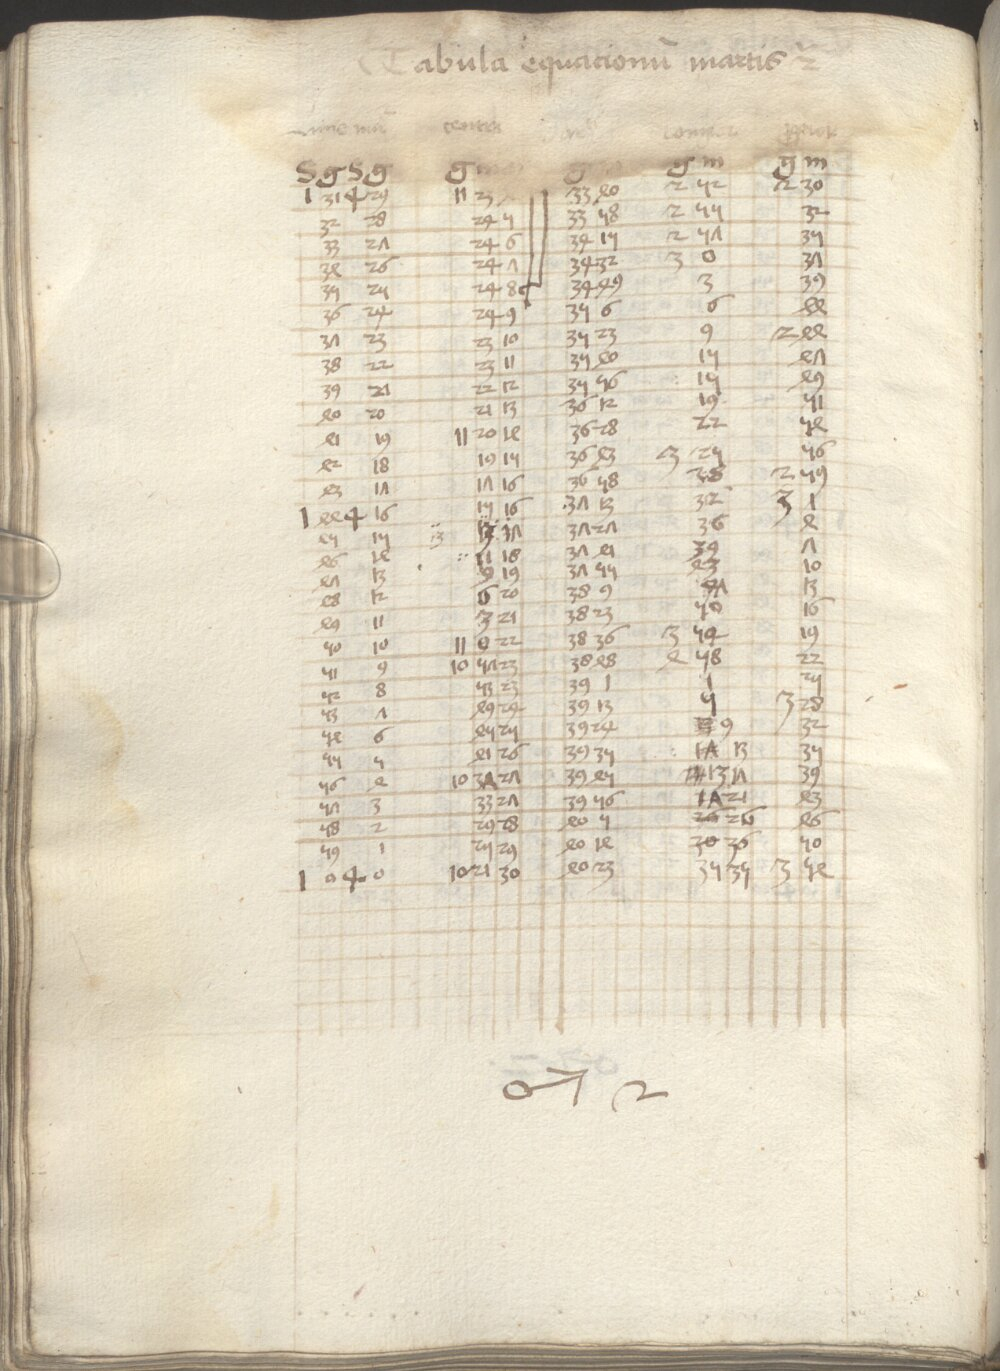 Tabula equacionũ martis 2
S g S g g g g m g m
1 31 4 29 11 23 33 40 2 52 2 30
32 28 24 5 33 58 2 55 32
33 27 24 6 34 15 2 57 35
34 26 24 7 34 32 3 0 37
35 25 24 8 34 49 3 39
36 24 24 9 35 6 6 44
37 23 23 10 35 23 9 2 44
38 22 23 11 35 40 15 47
39 21 22 12 35 56 15 49
40 20 21 13 36 12 19 51
41 19 11 20 14 36 28 22 54
42 18 19 15 36 43 3 25 56
43 17 17 16 36 58 28 2 59
1 44 4 16 15 16 37 13 32 3 1
45 15 13 13 17 37 27 36 4
46 14 11 18 37 41 39 7
47 13 9 19 37 55 43 10
48 12 6 20 38 9 47 13
49 11 3 21 38 23 50 16
50 10 11 0 22 38 36 3 54 19
51 9 10 57 23 38 48 4 58 22
52 8 53 23 39 1 1 25
53 7 49 24 39 13 5 3 28
54 6 45 25 39 24 9 32
55 5 41 26 39 35 17 13 35
56 4 10 37 27 39 45 13 17 39
57 3 33 27 39 56 17 21 43
58 2 29 28 40 5 26 26 46
59 1 25 29 40 14 30 36 50
1 0 4 0 10 21 30 40 23 35 35 3 54
♂ 2